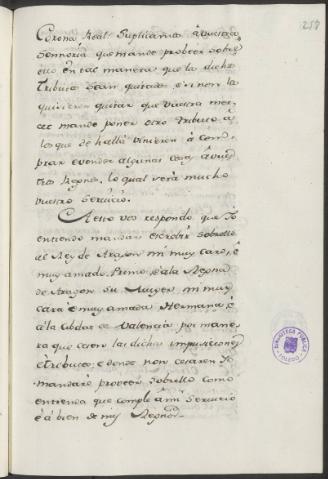 257
Corona Real Suplicamos à vuestra
Sennoria que mande proveer sobre
ello en tal manera que la dicha
tributa sean quitados, è si non la
quisieren quitar que vuestra mer-
cet mande poner otro tributo à
los que de hallà vinieren à com-
prar è vender algunas cosas à vues-
tros Regnos, lo qual serà mucho
vuestro servicio.
A esto vos respondo que Yo
entiendo mandar escrebir sobrello
al Rey de Aragon mi muy caro, è
muy amado Primo, è à la Reyna
de Aragon su Muger, mi muy
cara è muy amada Hermana, è
à la Cibdat de Valencia por mane-
ra que cesen las dichas imposiciones
è tributos; è donde non cesaren Yo
mandarè proveer sobrello como
entienda que cumple à mi servicio
è à bien de mis Regnos.
BIBLIOTECA PUBLICA